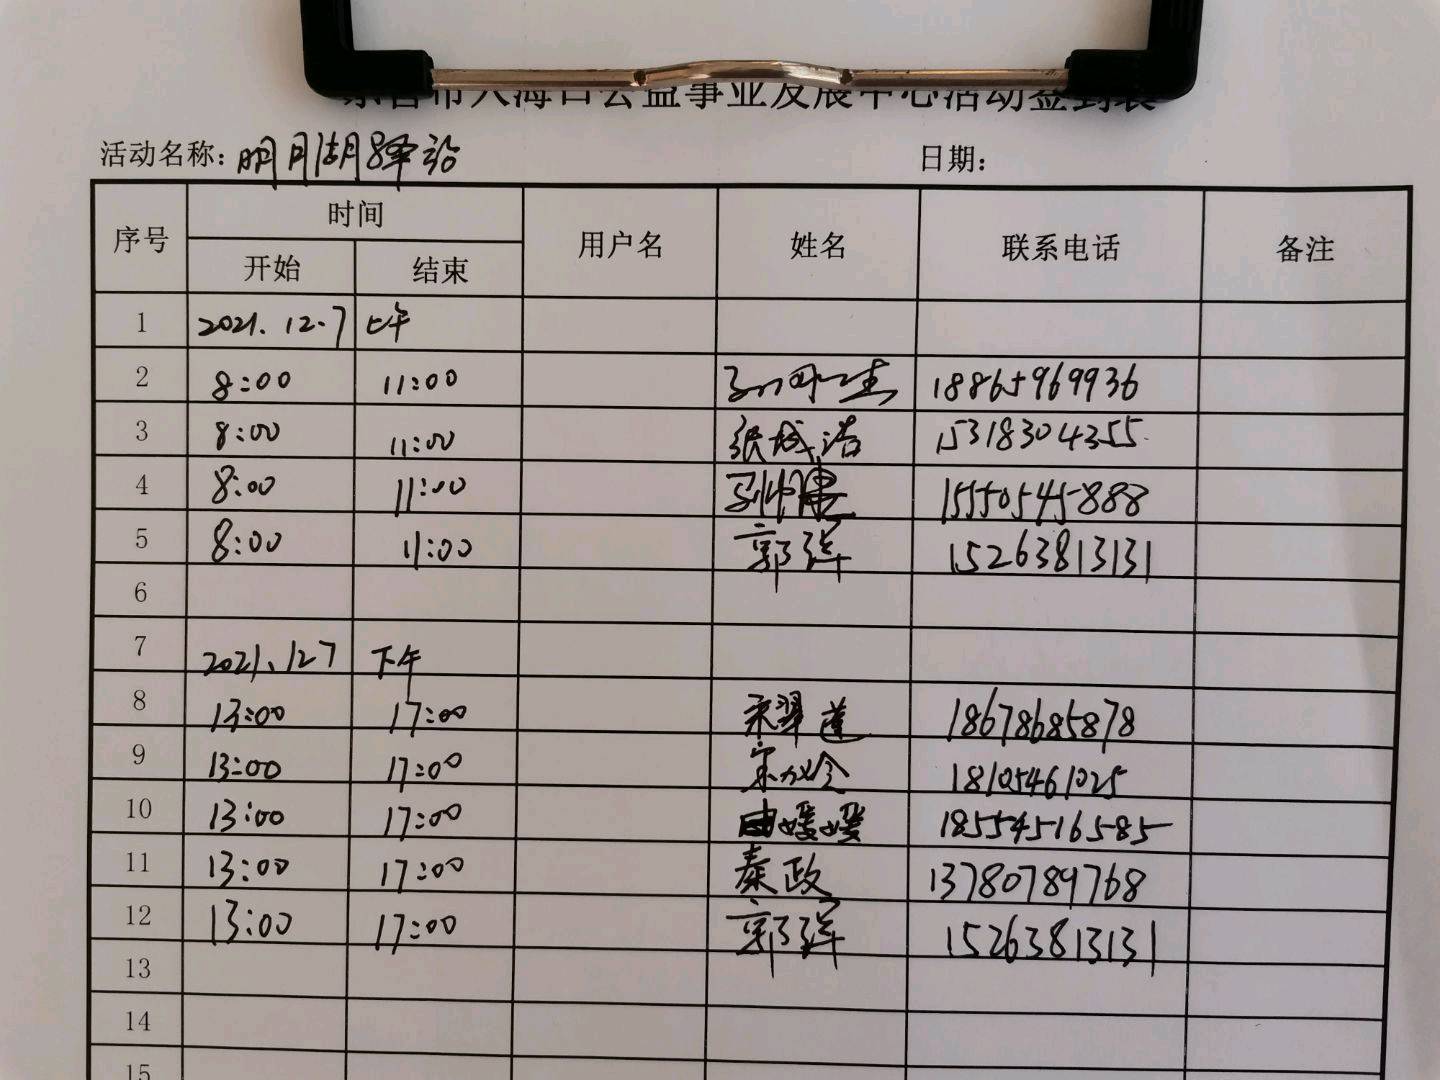 东营市入海口公益事业发展中心活动签到表
活动名称：明月湖驿站 日期：
序号 时间 用户名 姓名 联系电话 备注
开始 结束
1 2021.12.7 上午
2 8:00 11:00 18865969936
3 8:00 11:00 张成浩 15318304355
4 8:00 11:00 15550545888
5 8:00 11:00 郭洋 15263813131
6
7 2021.127 下午
8 13:00 17:00 宋翠莲 18678685878
9 13:00 17:00 18105461025
10 13:00 17:00 由媛媛 18554516585
11 13:00 17:00 秦政 13780789768
12 13:00 17:00 郭洋 15263813131
13
14
15